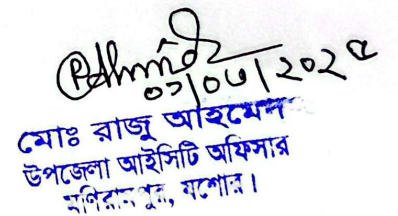 ০১/০৬/২০২৫
মোঃ রাজু আহমেদ
উপজেলা আইসিটি অফিসার
মণিরামপুর, যশোর।